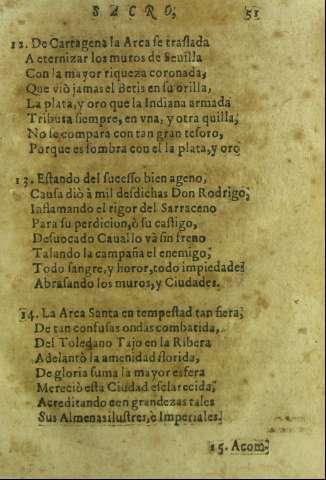 SACRO, 51
12. De Cartagena la Arca se traslada
A eternizar los muros de Seuilla
Con la mayor riqueza coronada,
Que viò jamas el Betis en su orilla,
La plata, y oro que la Indiana armada
Tributa siempre, en vna, y otra quilla,
No le compara con tan gran tesoro,
Porque es sombra con el la plata, y oro
13. Estando del sucesso bien ageno,
Causa diò à mil desdichas Don Rodrigo,
Inflamando el rigor del Sarraceno
Para su perdicion, ò su castigo,
Desuocado Cauallo và sin freno
Talando la campaña el enemigo,
Todo sangre, y horor, todo impiedades
Abrasando los muros, y Ciudades.
14. La Arca Santa en tempestad tan fiera,
De tan confusas ondas combatida,
Del Toledano Tajo en la Ribera
Adelantò la amenidad florida,
De gloria suma la mayor esfera
Mereciò esta Ciudad esclarecida,
Acreditando con grandezas tales
Sus Almenas ilustres, e Imperiales.
15. Acom-